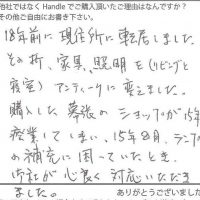 他社ではなく Handle でご購入頂いたご理由はなんですか？
その他ご自由にお書き下さい。
18年前に現住所に転居しました。
その折、家具、照明を（リビングと
寝室）アンティークに変えました。
購入した幕張のショップが15年
産業してしまい、15年2月、ランプ
の補充に困っていたとき
御社が心良く対応いただき
ました。
ありがとうございました